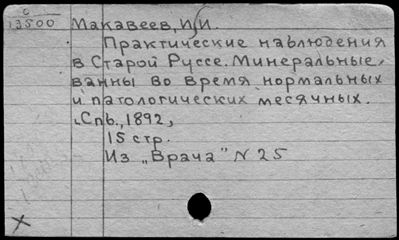 С
13500 Макавеев, И.И.
Практические наблюдения
в Старой Руссе. Минеральные
ванны во время нормальных
и патологических месячных.
Спб., 1892,
15 стр.
Из „Врача" N 25